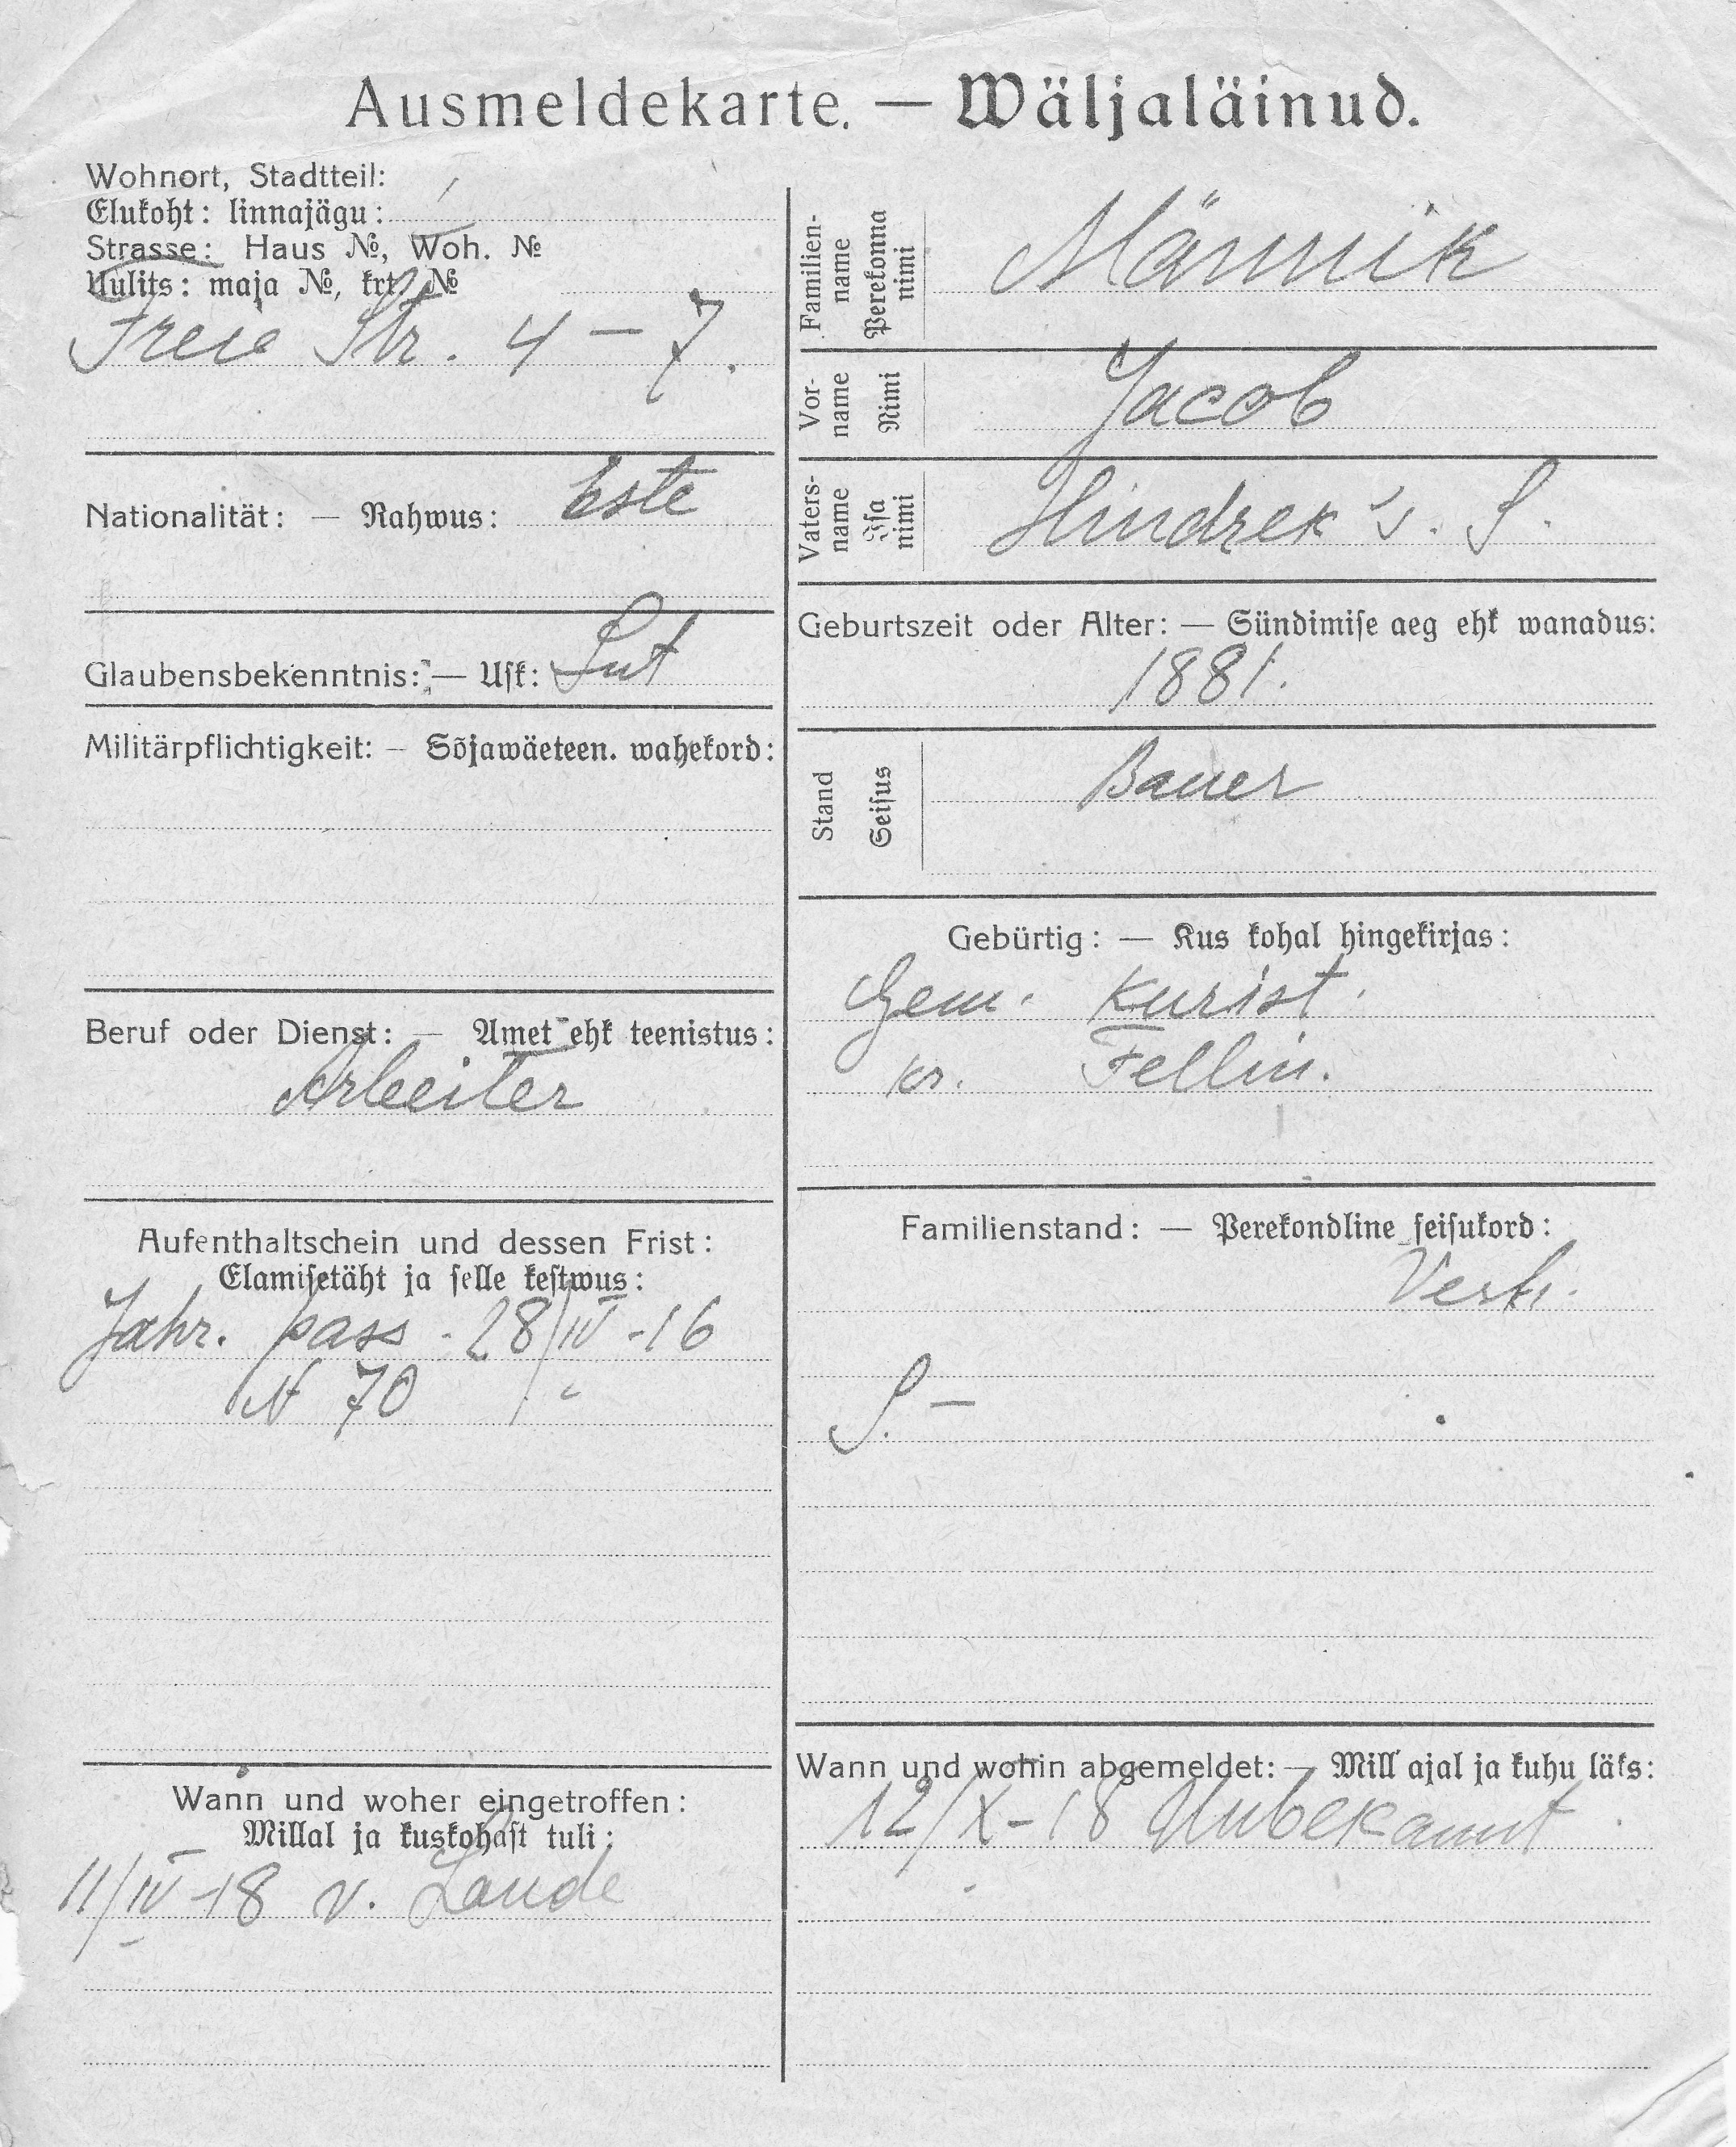 Ausmeldekarte. — Wäljaläinud.
Wohnort, Stadtteil:
Elukoht: linnajägu: I
Strasse: Haus №, Woh. №
Uulits: maja №, krt. №
Freie Str. 4 – 7.
Nationalität: — Rahwus: Este
Glaubensbekenntnis: — Usk: Lut
Militärpflichtigkeit: — Sõjawäeteen. wahekord:
Beruf oder Dienst: — Amet ehk teenistus:
Arbeiter
Aufenthaltschein und dessen Frist:
Elamisetäht ja selle kestwus:
Jahr. pass. 28/IV -16
N 70 / "
Wann und woher eingetroffen:
Millal ja kuskohast tuli:
11/IV -18 v. Lande
Familien-
name
Perekonna
nimi
Männik
Vor-
name
Nimi
Jacob
Vaters-
name
Isa
nimi
Hindrek's. S.
Geburtszeit oder Alter: — Sündimise aeg ehk wanadus:
1881.
Stand
Seisus
Bauer
Gebürtig: — Kus kohal hingekirjas:
Gem. Kurist.
Kr. Fellin.
Familienstand: — Perekondline seisukord:
Verh.
S. —
Wann und wohin abgemeldet: — Mill' ajal ja kuhu läks:
12/X-18 Unbekannt